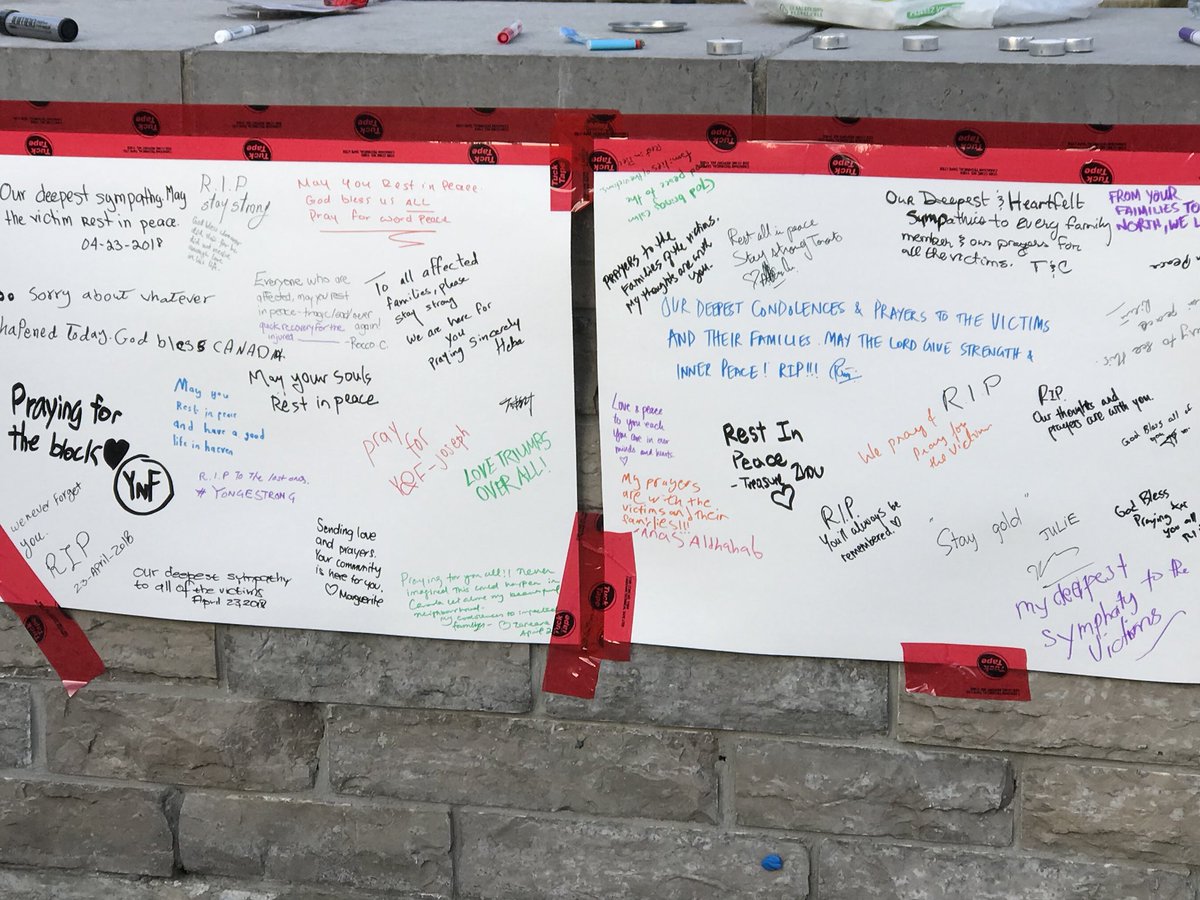 Tuck
Tape
Our deepest sympathy. May
the victim Rest in peace.
04-23-2018
R.I.P
stay strong
May you Rest in Peace.
God bless us ALL
Pray for word Peace
sorry about whatever
hapened Today. God bless CANADA
Everyone who are
affected, may you rest
in peace - tragic/sad/over
quick recovery for the again!
injured - Rocco C.
To all affected
families, please
stay strong
we are here for
you
Praying Sincerely
Heba
Praying for
the block
YNF
May you
Rest in peace
and have a good
life in heaven
May your souls
Rest in peace
R.I.P To the lost ones.
# YONGESTRONG
pray
for
joseph
LOVE TRIUMPS
OVER ALL!
we never forget
you.
R.I.P
23-April-2018
Our deepest sympathy
to all of the victims
April 23 2018
Sending love
and prayers.
Your community
is here for you.
Marguerite
Praying for you all! I never
imagined this could happen in
Canada let alone my beautiful
neighbourhood.
my condolences to impacted
families -
God brings calm
and peace to the
families of the victims
PRAYERS to the
Families of the victims.
My thoughts are with
you.
Rest all in peace
Stay strong Toronto
Our Deepest & Heartfelt
Sympathies to Every family
member & our prayers for
all the victims. T & C
FROM YOUR
FAMILIES TO
NORTH, WE L
OUR DEEPEST CONDOLENCES & PRAYERS TO THE VICTIMS
AND THEIR FAMILIES. MAY THE LORD GIVE STRENGTH &
INNER PEACE! RIP!!!
Love & peace
to you each
You are in our
minds and hearts.
Rest In
Peace
- Treasure
We pray &
Pray for
the Victim
RIP
RIP.
Our thoughts and
prayers are with you.
God Bless all of
you
My prayers
are with the
victims and their
families!!!
- Anas Aldhahab
R.I.P.
You'll always be
remembered
"Stay gold"
JULIE
God Bless
Praying for
you all
my deepest
symphaty to the
victims